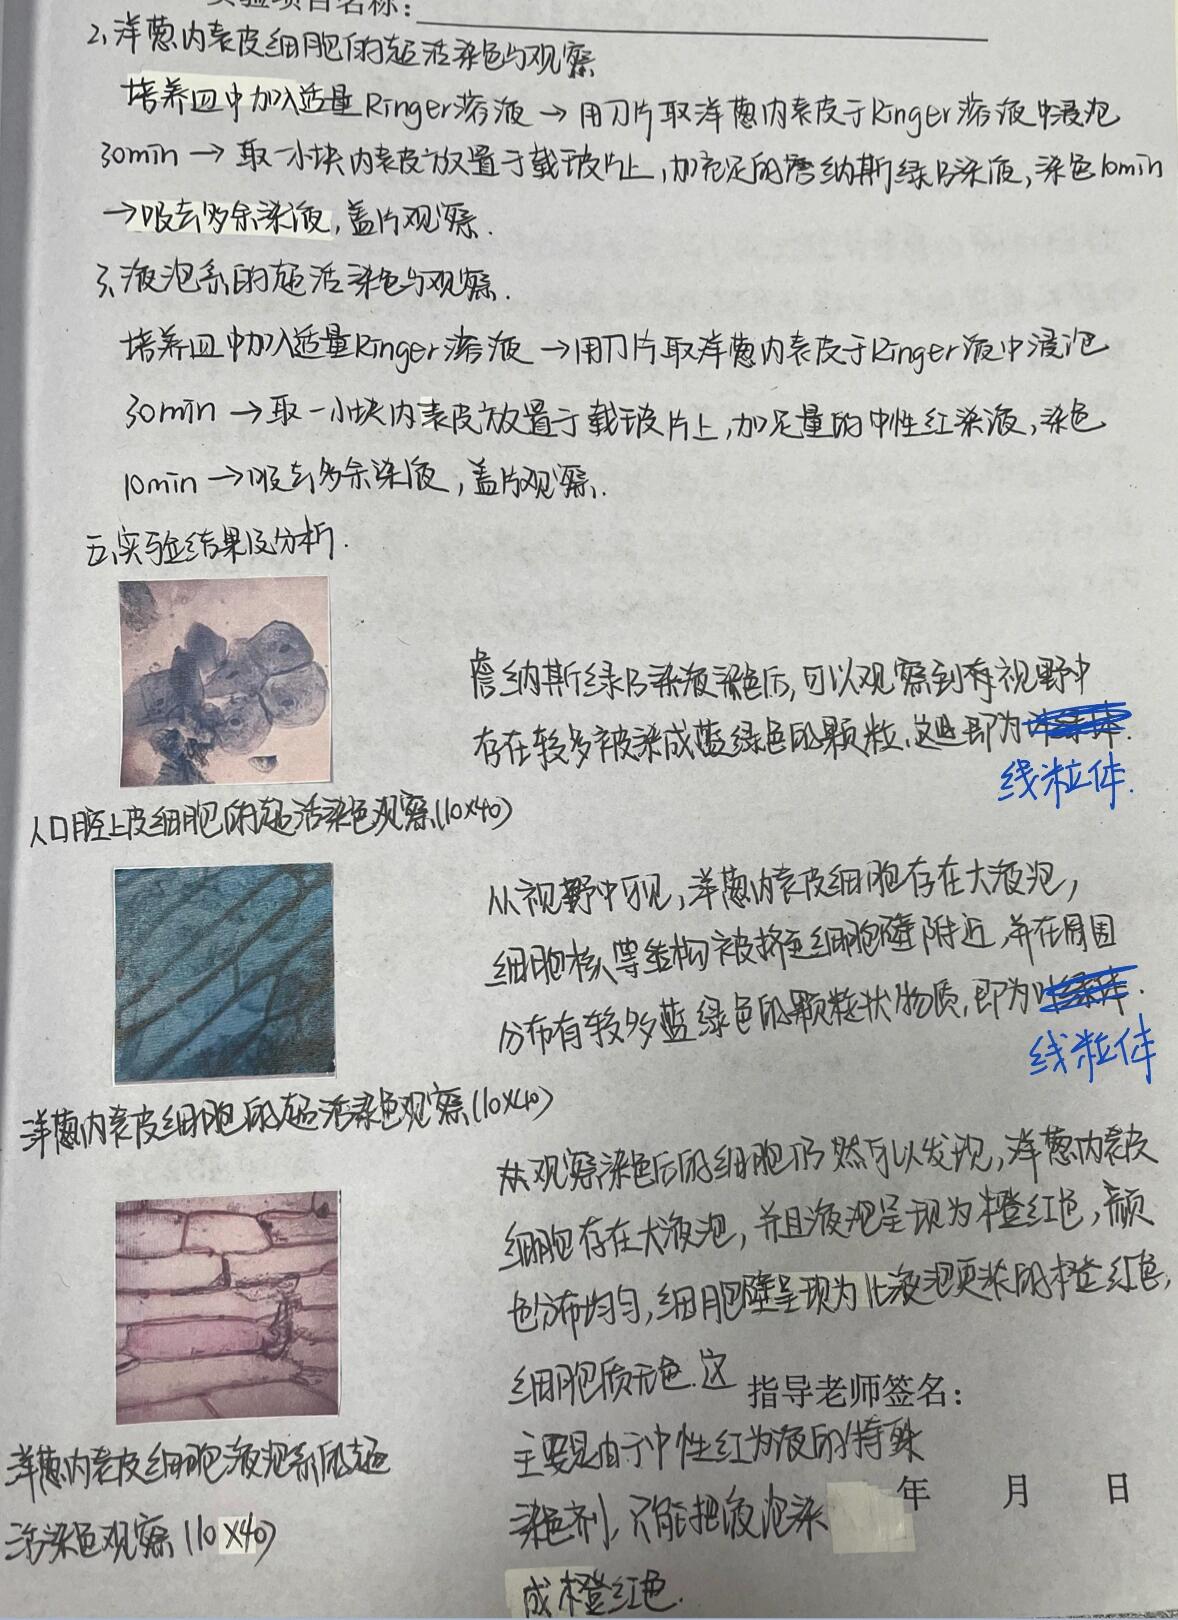 实验项目名称：
2、洋葱内表皮细胞的超活染色与观察
培养皿中加入适量Ringer溶液→用刀片取洋葱内表皮于Ringer溶液中浸泡
30min→取一小块内表皮放置于载玻片上,加充足的詹纳斯绿B染液,染色10min
→吸去多余染液,盖片观察.
3、液泡系的超活染色与观察.
培养皿中加入适量Ringer溶液→用刀片取洋葱内表皮于Ringer液中浸泡
30min→取一小块内表皮放置于载玻片上,加足量的中性红染液,染色
10min→吸去多余染液,盖片观察.
五、实验结果及分析.
詹纳斯绿B染液染色后,可以观察到有视野中
存在较多被染成蓝绿色的颗粒,这些即为
线粒体.
人口腔上皮细胞的超活染色观察(10×40)
从视野中可见,洋葱内表皮细胞存在大液泡,
细胞核等结构被挤至细胞壁附近,并在周围
分布有较多蓝绿色的颗粒状物质,即为
线粒体
洋葱内表皮细胞的超活染色观察(10×40)
从观察染色后的细胞仍然可以发现,洋葱内表皮
细胞存在大液泡,并且液泡呈现为橙红色,颜
色分布均匀,细胞壁呈现为比液泡更深的橙红色,
细胞质无色.这
指导老师签名：
主要是由于中性红为液泡的特殊
洋葱内表皮细胞液泡系的超
活染色观察(10×40)
年 月 日
染色剂,只能把液泡染
成橙红色.